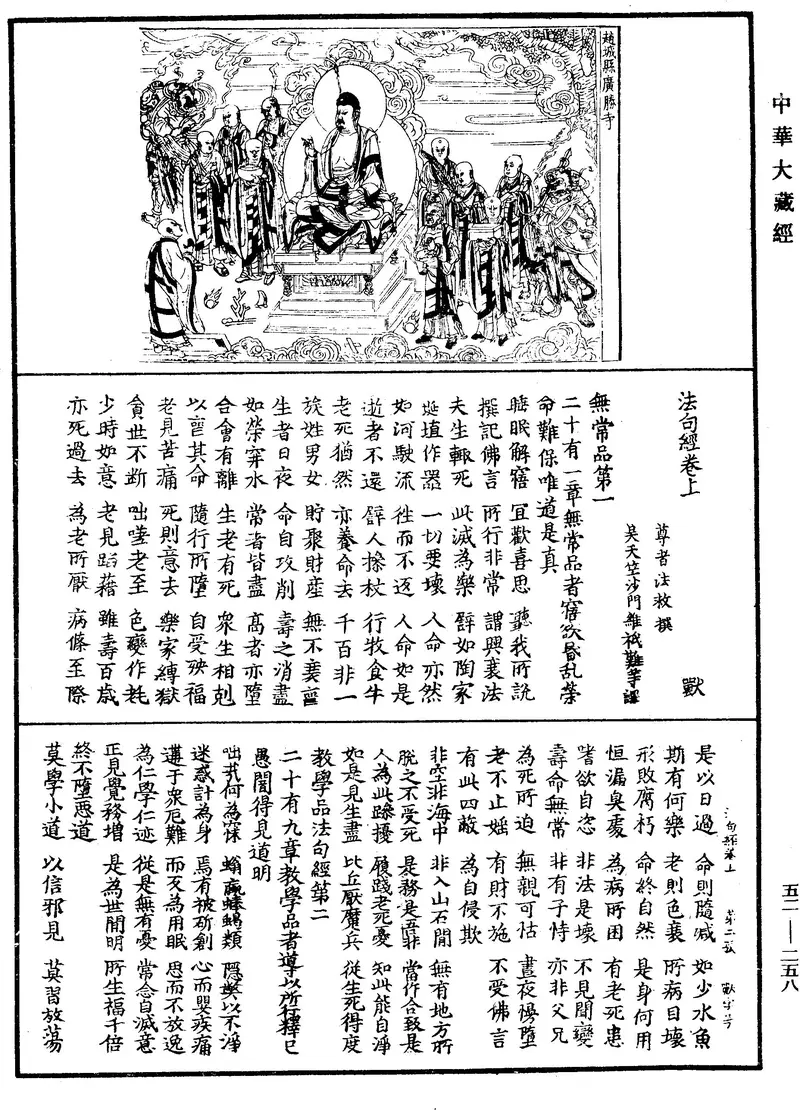 中華大藏經
五二—二五八
趙城縣廣勝寺
法句經卷上
獸
尊者法救 撰
吳天竺沙門維祇難等譯
無常品第一
二十有一章無常品者寤欲昬乱榮
命難保唯道是真
睡眠解寤 宜歡喜思 聽我所說
撰記佛言 所行非常 謂興衰法
夫生輒死 此滅為樂 譬如陶家
埏埴作器 一切要壞 人命亦然
如河駛流 往而不返 人命如是
逝者不還 譬人操杖 行牧食牛
老死猶然 亦養命去 千百非一
族姓男女 貯聚財産 無不衰喪
生者日夜 命自攻削 壽之消盡
如榮穽水 常者皆盡 高者亦墮
合會有離 生老有死 衆生相剋
以喪其命 隨行所墮 自受殃福
老見苦痛 死則意去 樂家縛獄
貪世不断 咄嗟老至 色變作耗
少時如意 老見蹈藉 雖壽百歲
亦死過去 為老所厭 病條至際
是以日過 命則隨減 如少水魚
斯有何樂 老則色衰 所病自壞
形敗腐朽 命終自然 是身何用
恒漏臭處 為病所困 有老死患
嗜欲自恣 非法是壞 不見聞變
壽命無常 非有子恃 亦非父兄
為死所迫 無親可怙 晝夜慢墮
老不止婬 有財不施 不受佛言
有此四蔽 為自侵欺
非空非海中 非入山石間 無有地方所
脫之不受死 是務是吾非 當作合致是
人為此躁擾 履踐老死憂 知此能自淨
如是見生盡 比丘厭魔兵 從生死得度
教學品法句經第二
二十有九章教學品者導以所行釋已
愚闇得見道明
咄哉何為寐 螉蠃蜯蝎類 隱弊以不淨
迷惑計為身 焉有被斫創 心而嬰疾痛
遘于衆厄難 而反為用眠 思而不放逸
為仁學仁迹 從是無有憂 常念自滅意
正見覺務增 是為世間明 所生福千倍
終不墮惡道
莫學小道 以信邪見 莫習放蕩